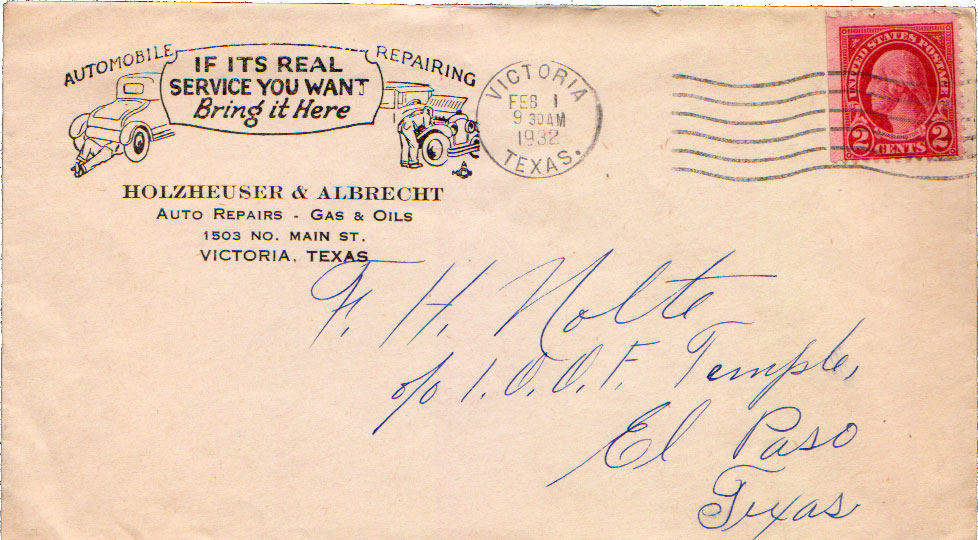 AUTOMOBILE REPAIRING
IF ITS REAL
SERVICE YOU WANT
Bring it Here
HOLZHEUSER & ALBRECHT
AUTO REPAIRS - GAS & OILS
1503 NO. MAIN ST.
VICTORIA, TEXAS
VICTORIA
FEB 1
9 30 AM
1932
TEXAS.
UNITED STATES POSTAGE
2 CENTS 2
F. H. Nolte
c/o I. O. O. F. Temple,
El Paso
Texas